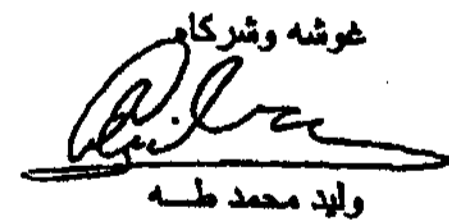 غوشه وشركاه
وليد محمد طـــه